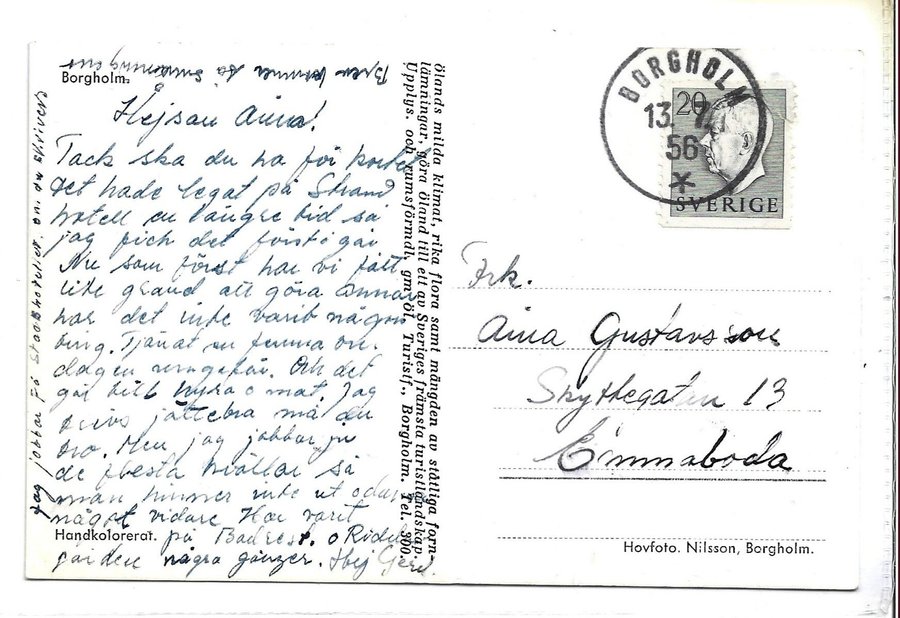 Borgholm.
Hejsan Aina!
Tack ska du ha för kortet
det hade legat på Strand
hotell en längre tid så
jag fick det först igår
Nu som först har vi fått
lite grand att göra annars
har det inte varit någon
ting. Tjänat en femma om
dagen ungefär. Och det
går till hyra o mat. Jag
trivs jättebra må du
tro. Men jag jobbar ju
de flesta kvällar så
man hinner inte ut o dansa
något vidare Har varit
på Badrest. o Ridu
gården några gånger. Hej Gerd.
Handkolorerat.
Jag jobbar på Stadshotellet om du skriver
Brev kommer så småningom
ölands milda klimat, rika flora samt mängden av ståtliga forn-
lämningar, göra öland till ett av Sveriges främsta turistlandskap.
Upplys. och rumsförmdl. gm Öl. Turistf., Borgholm. Tel. 300.
BORGHOLM
13. 7.
56
20
SVERIGE
Frk.
Aina Gustavsson
Skyttegatan 13
Emmaboda
Hovfoto. Nilsson, Borgholm.